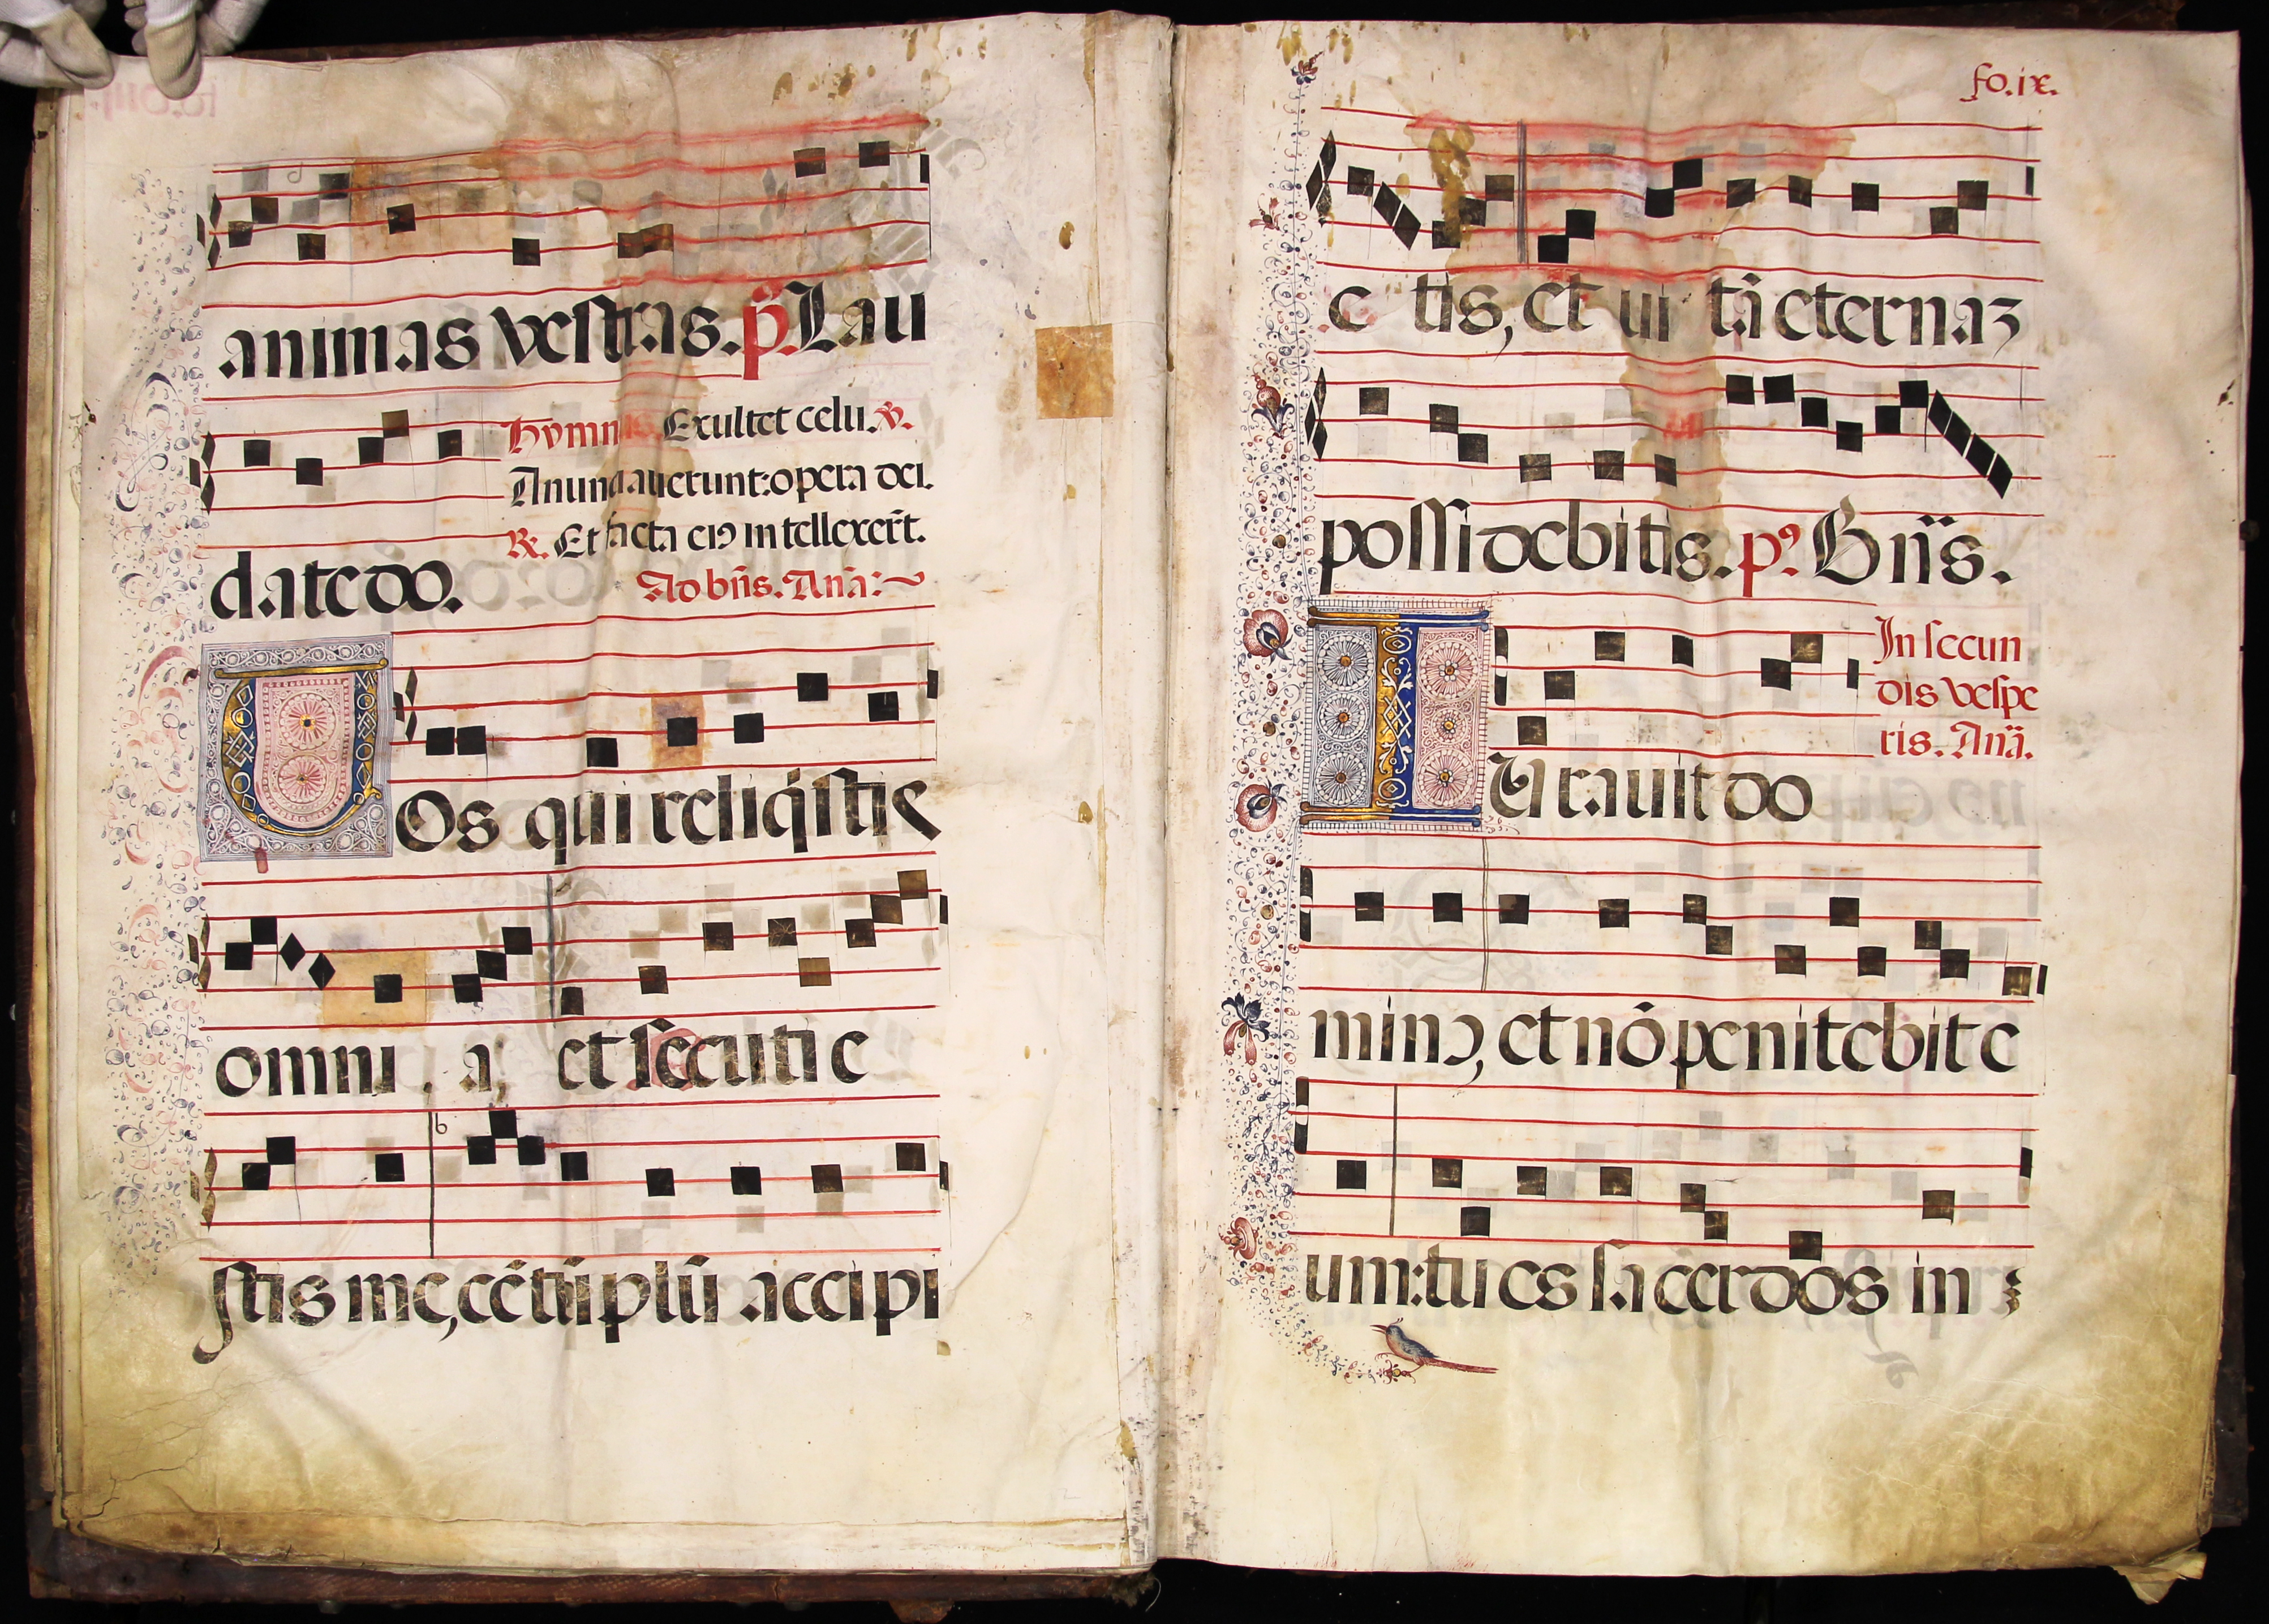 animas vestras. p̃. Lau
Hymnus. Exultet celu. V.
Anunciauerunt: opera dei.
R. Et facta eiꝰ intellexer̃t.
date do.
Ad bñs. Anã:
VOs qui reliq̃stis
omni a, et secuti e
stis me, cẽtũplũ accipi
fo. ix.
e tis, et ui tã eternaz
possidebitis. pꝰ. Bñs.
In secun
dis vespe
ris. Anã.
IUrauit do
minꝰ, et nõ penitebit e
um: tu es sacerdos in